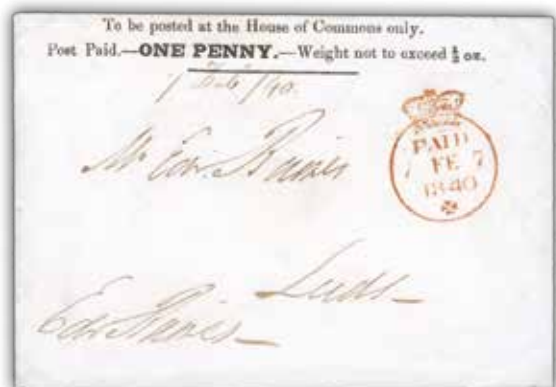 To be posted at the House of Commons only.
Post Paid.—ONE PENNY.—Weight not to exceed ½ oz.
7 Feb/40.
Mr Edw. Baines
PAID
7 FE 7
1840
Leeds—
Edw Baines—